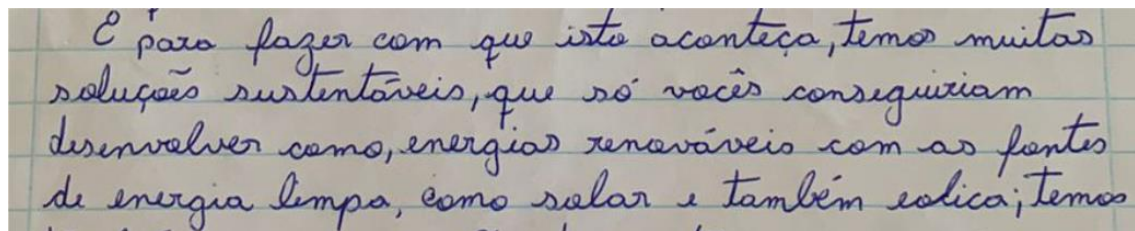 E para fazer com que isto aconteça, temos muitas
soluções sustentáveis, que só vocês conseguiriam
desenvolver como, energias renováveis com as fontes
de energia limpa, como solar e também eolica; temos